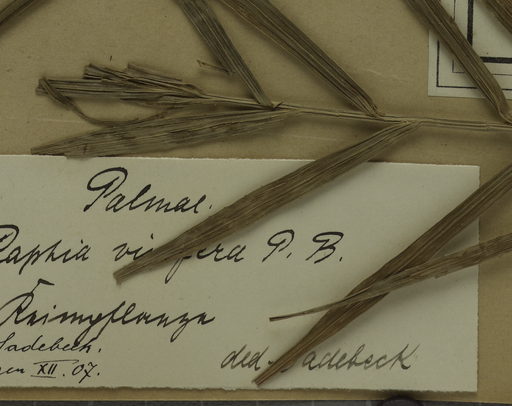 Palmae.
Raphia vinifera P. B.
Keimpflanze
Sadebeck.
XII. 07.
ded. Sadebeck